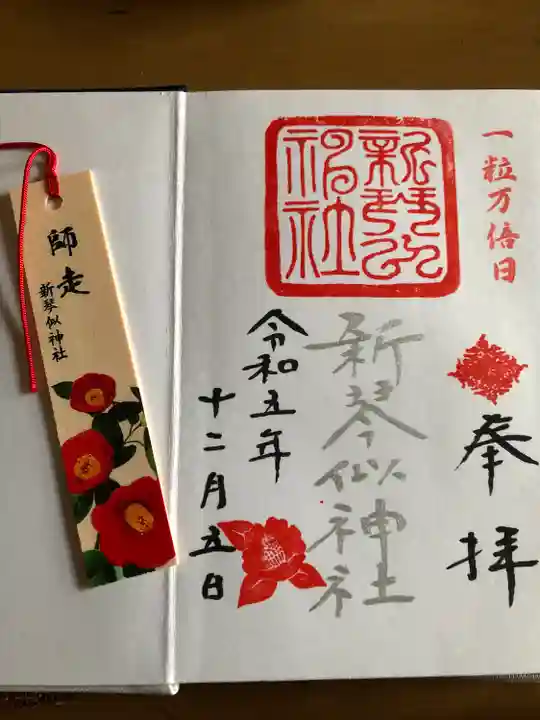 一粒万倍日
奉拝
新琴似
神社
新琴似神社
令和五年
十二月五日
師走
新琴似神社